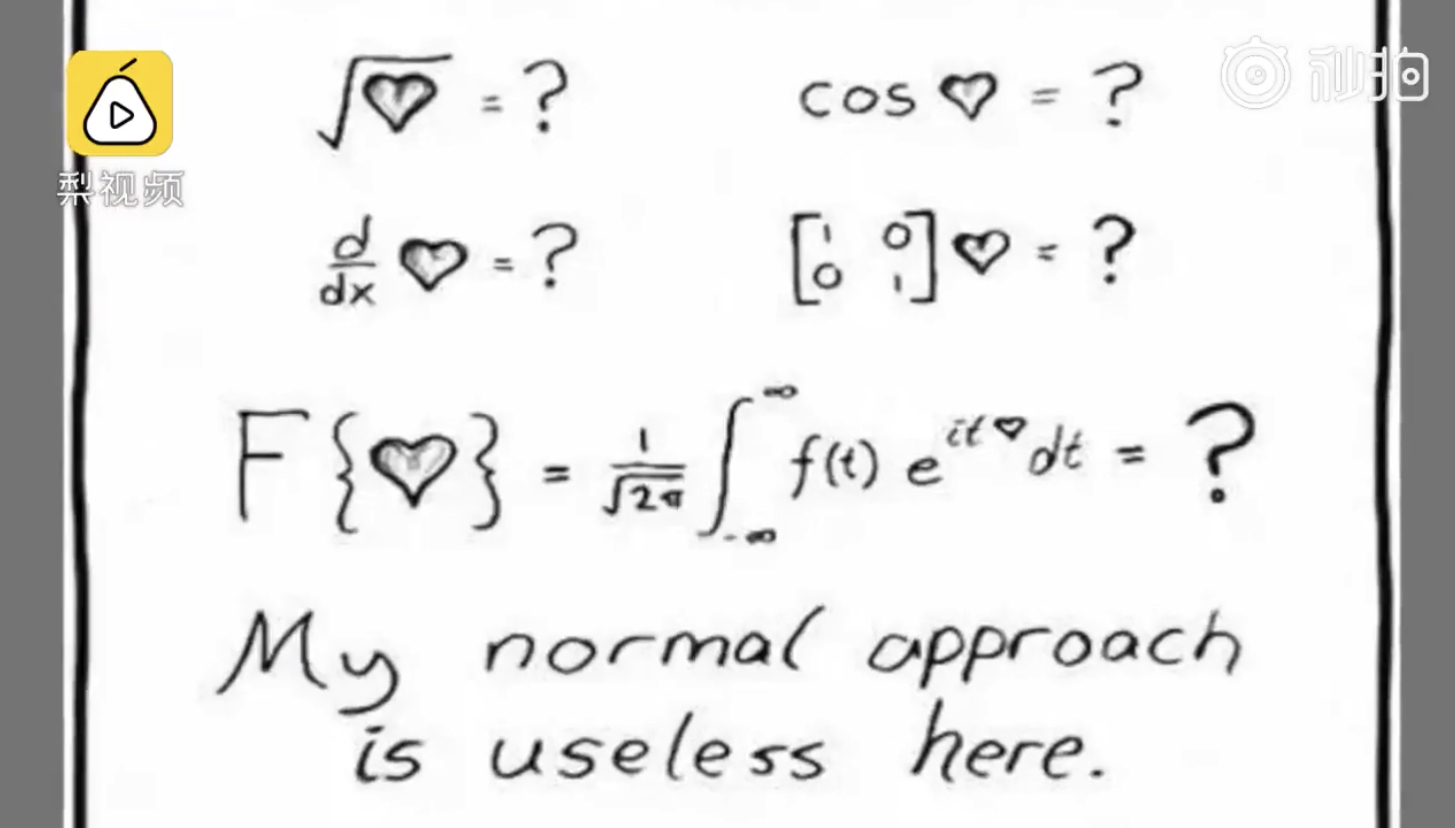 梨视频
秒拍
√♡ = ?
cos ♡ = ?
d/dx ♡ = ?
[1 0
0 1] ♡ = ?
F{♡} = 1/√2π ∫_{-∞}^{∞} f(t) e^{it♡} dt = ?
My normal approach
is useless here.